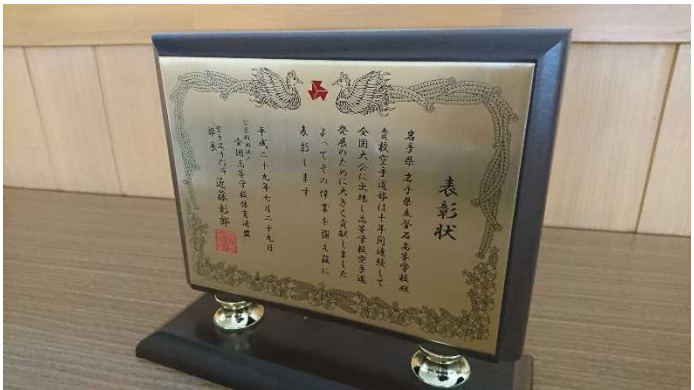 表彰状
岩手県 岩手県立釜石高等学校殿
貴校空手道部は十年間連続して
全国大会に出場し高等学校空手道
発展のために大きく貢献しました
よってその偉業を讃え茲に
表彰します
平成二十九年七月二十九日
公益財団法人
全国高等学校体育連盟
空手道専門部
部長 近藤彰郎